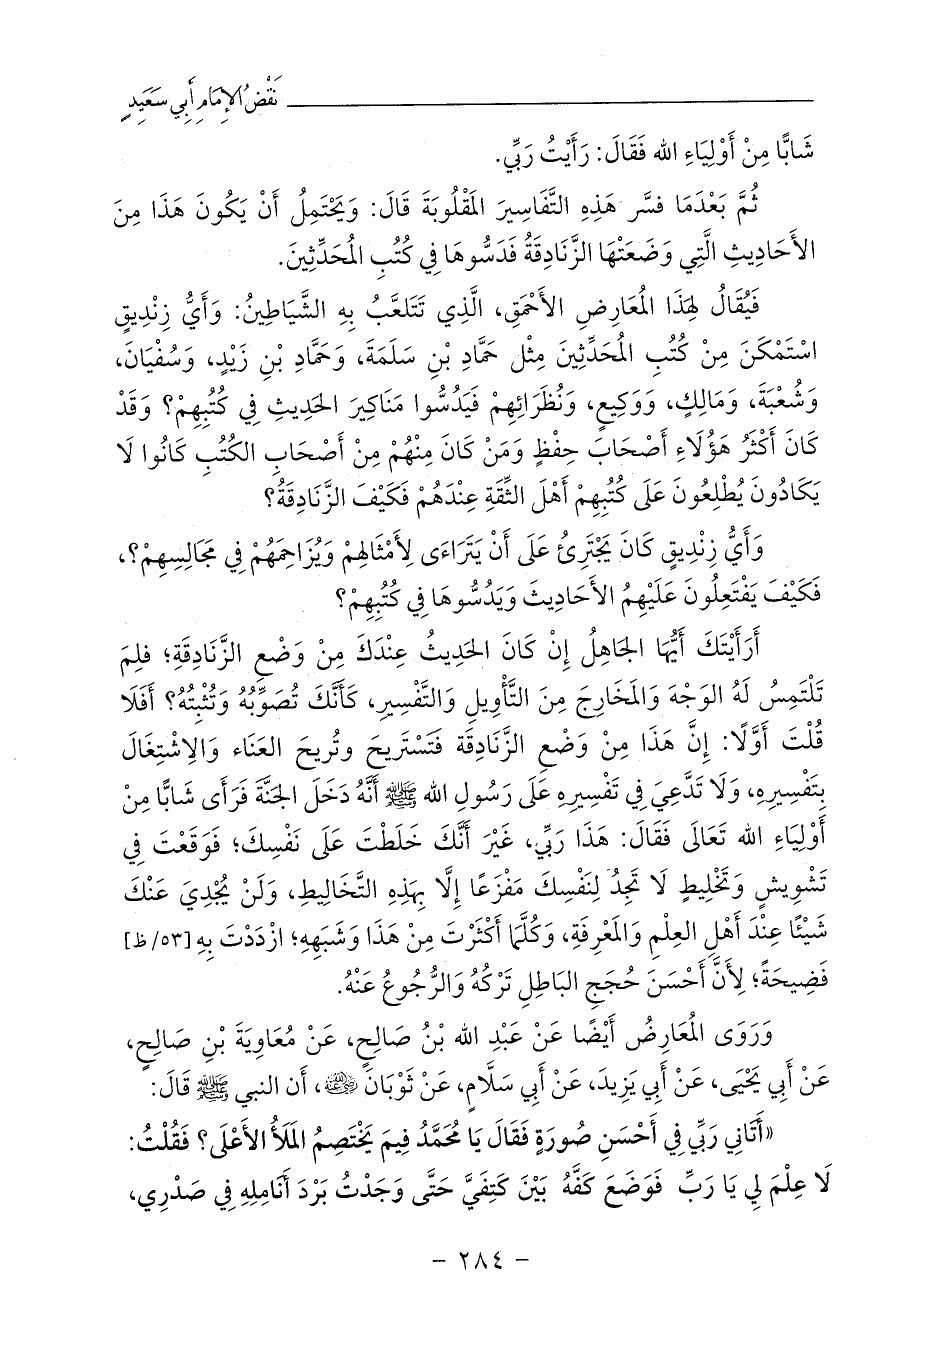 نَقْضُ الإِمَامِ أَبِي سَعِيدٍ
شَابًّا مِنْ أَوْلِيَاءِ الله فَقَالَ: رَأَيْتُ رَبِّي.
ثُمَّ بَعْدَمَا فسَّر هَذِهِ التَّفَاسِيرَ المَقْلُوبَةَ قَالَ: وَيَحْتَمِلُ أَنْ يَكُونَ هَذَا مِنَ
الأَحَادِيثِ الَّتِي وَضَعَتْهَا الزَّنَادِقَةُ فَدَسُّوهَا فِي كُتُبِ المُحَدِّثِينَ.
فَيُقَالُ لِهَذَا المُعَارِضِ الأَحْمَقِ، الَّذِي تَتَلَعَّبُ بِهِ الشَّيَاطِينُ: وَأَيُّ زِنْدِيقٍ
اسْتَمْكَنَ مِنْ كُتُبِ المُحَدِّثِينَ مِثْل حَمَّادِ بْنِ سَلَمَةَ، وَحَمَّادِ بْنِ زَيْدٍ، وَسُفْيَانَ،
وَشُعْبَةَ، وَمَالِكٍ، وَوَكِيعٍ، وَنُظَرَائِهِمْ فَيَدُسُّوا مَنَاكِيرَ الحَدِيثِ فِي كُتُبِهِمْ؟ وَقَدْ
كَانَ أَكْثَرُ هَؤُلَاءِ أَصْحَابَ حِفْظٍ وَمَنْ كَانَ مِنْهُمْ مِنْ أَصْحَابِ الكُتُبِ كَانُوا لَا
يَكَادُونَ يُطْلِعُونَ عَلَى كُتُبِهِمْ أَهْلَ الثِّقَةِ عِنْدَهُمْ فَكَيْفَ الزَّنَادِقَةُ؟
وَأَيُّ زِنْدِيقٍ كَانَ يَجْتَرِئُ عَلَى أَنْ يَتَرَاءَى لِأَمْثَالِهِمْ وَيُزَاحِمَهُمْ فِي مَجَالِسِهِمْ؟،
فَكَيْفَ يَفْتَعِلُونَ عَلَيْهِمُ الأَحَادِيثَ وَيَدُسُّوهَا فِي كُتُبِهِمْ؟
أَرَأَيْتَكَ أَيُّهَا الجَاهِلُ إِنْ كَانَ الحَدِيثُ عِنْدَكَ مِنْ وَضْعِ الزَّنَادِقَةِ؛ فلِمَ
تَلْتَمِسُ لَهُ الوَجْهَ وَالمَخَارِجَ مِنَ التَّأْوِيلِ وَالتَّفْسِيرِ، كَأَنَّكَ تُصَوِّبُهُ وَتُثْبِتُهُ؟ أَفَلَا
قُلْتَ أَوَّلًا: إِنَّ هَذَا مِنْ وَضْعِ الزَّنَادِقَة فَتَسْتَرِيحَ وتُرِيحَ العَنَاء وَالِاشْتِغَالَ
بِتَفْسِيرِهِ، وَلَا تَدَّعِيَ فِي تَفْسِيرِهِ عَلَى رَسُولِ الله ﷺ أَنَّهُ دَخَلَ الجَنَّةَ فَرَأَى شَابًّا مِنْ
أَوْلِيَاءِ الله تَعَالَى فَقَالَ: هَذَا رَبِّي، غَيْرَ أَنَّكَ خَلَطْتَ عَلَى نَفْسِكَ؛ فَوَقَعْتَ فِي
تَشْوِيشٍ وَتَخْلِيطٍ لَا تَجِدُ لِنَفْسِكَ مَفْزَعًا إِلَّا بِهَذِهِ التَّخَالِيطِ، وَلَنْ يُجْدِيَ عَنْكَ
شَيْئًا عِنْدَ أَهْلِ العِلْمِ وَالمَعْرِفَةِ، وَكُلَّمَا أَكْثَرْتَ مِنْ هَذَا وَشَبَهِهِ؛ ازْدَدْتَ بِهِ [٥٣/ظ]
فَضِيحَةً؛ لِأَنَّ أَحْسَنَ حُجَجِ البَاطِلِ تَرْكُهُ وَالرُّجُوعُ عَنْهُ.
وَرَوَى المُعَارِضُ أَيْضًا عَنْ عَبْدِ الله بْنُ صَالِحٍ، عَنْ مُعَاوِيَةَ بْنِ صَالِحٍ،
عَنْ أَبِي يَحْيَى، عَنْ أَبِي يَزِيدَ، عَنْ أَبِي سَلَّامٍ، عَنْ ثَوْبَانَ رضي الله عنه، أن النبي ﷺ قَالَ:
«أَتَانِي رَبِّي فِي أَحْسَنِ صُورَةٍ فَقَالَ يَا مُحَمَّدُ فِيمَ يَخْتَصِمُ المَلَأُ الأَعْلَى؟ فَقُلْتُ:
لَا عِلْمَ لِي يَا رَبِّ فَوَضَعَ كَفَّهُ بَيْنَ كَتِفَيَّ حَتَّى وَجَدْتُ بَرْدَ أَنَامِلِهِ فِي صَدْرِي،
- ٢٨٤ -